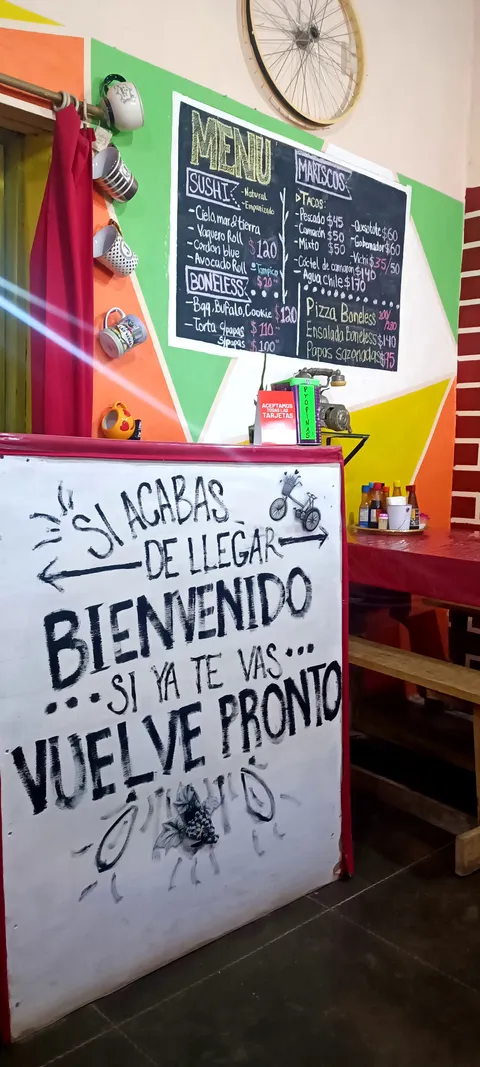 MENU
SUSHI - Natural
- Empanizado
- Cielo, mar & tierra
- Vaquero Roll
- Cordon blue $120
- Avocado Roll
BONELESS
- Bqq, Bufalo, Cookie $120
- Torta c/papas $110
s/papas $100
MARISCOS
TACOS:
Pescado $45
Camarón $50
Mixto $50
- Gobernador $60
- Cóctel de camarón $140
- Agua Chile $170
Pizza Boneless
Ensalada boneless $140
Papas sazonadas $75
ACEPTAMOS
TODAS LAS
TARJETAS
PROPINAS
SI ACABAS
DE LLEGAR
BIENVENIDO
...SI YA TE VAS...
VUELVE PRONTO